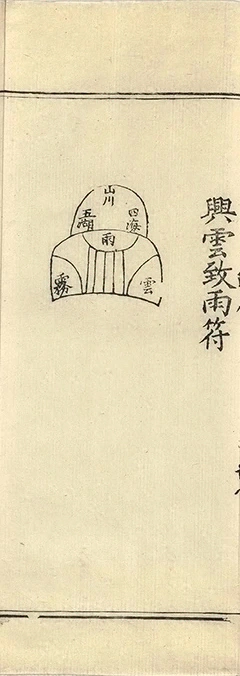 興雲致雨符
山川
四海
五湖
雨
雲
霧